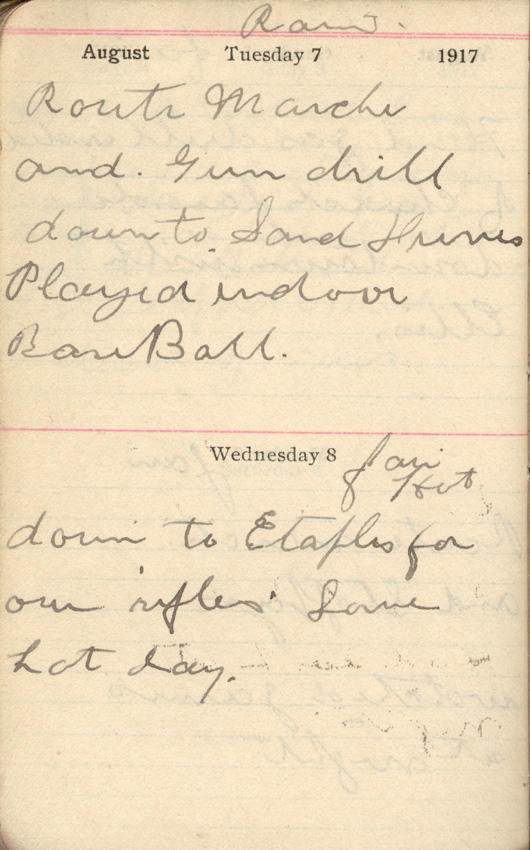 Rain.
August Tuesday 7 1917
Route Marche
and. Gun drill
down to Sand Dunes
Played indoor
BaseBall.
Wednesday 8 fair
Hot
down to Etaples for
our rifles. Some
hot day.